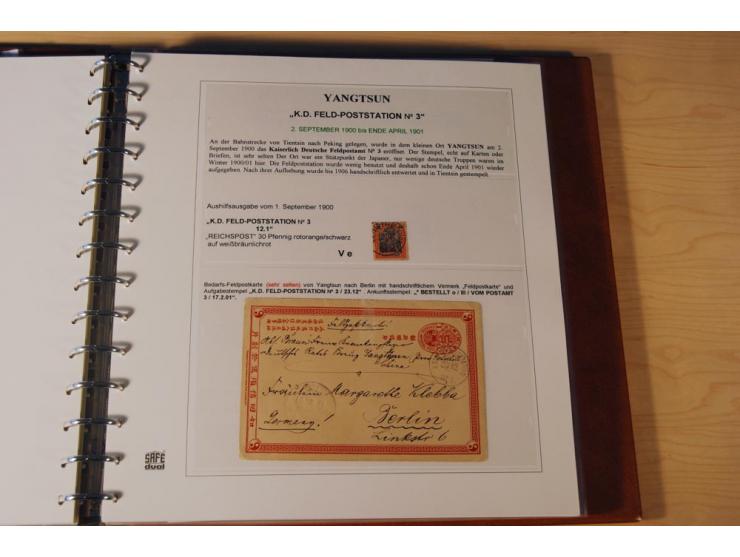 YANGTSUN
„K.D. FELD-POSTSTATION Nº 3"
2. SEPTEMBER 1900 bis ENDE APRIL 1901
An der Bahnstrecke von Tientsin nach Peking gelegen, wurde in dem kleinen Ort YANGTSUN am 2.
September 1900 das Kaiserlich Deutsche Feldpostamt Nº 3 eröffnet. Der Stempel, echt auf Karten oder
Briefen, ist sehr selten Der Ort war ein Stützpunkt der Japaner, nur wenige deutsche Truppen waren im
Winter 1900/01 hier. Die Feldpoststation wurde wenig benutzt und deshalb schon Ende April 1901 wieder
aufgegeben. Nach ihrer Aufhebung wurde bis 1906 handschriftlich entwertet und in Tientsin gestempelt.
Aushilfsausgabe vom 1. September 1900
„K.D. FELD-POSTSTATION Nº 3
12.1"
„REICHSPOST" 30 Pfennig rotorange/schwarz
auf weißbräunlichrot
V e
Bedarfs-Feldpostkarte (sehr selten) von Yangtsun nach Berlin mit handschriftlichem Vermerk „Feldpostkarte" und
Aufgabestempel „K.D. FELD-POSTSTATION Nº 3 / 23.12". Ankunftsstempel: „* BESTELLT o / III / VOM POSTAMT
3 / 17.2.01".
Feldpostkarte
Fräulein Margarethe Klebba
Berlin
Germany!
Linkstr 6
SAFE
dual